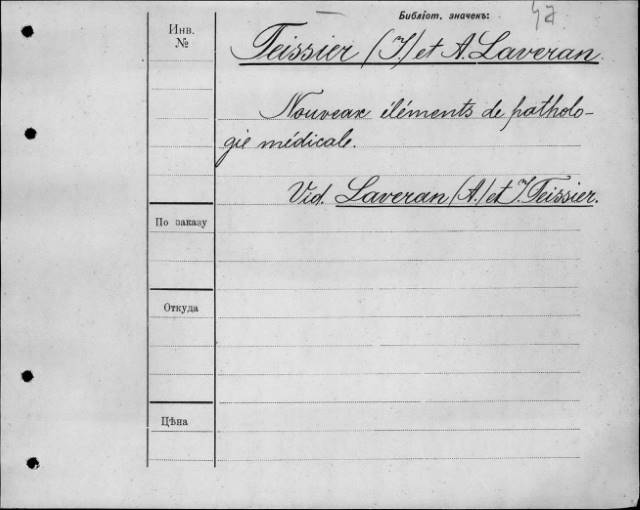 Библіот. значекъ:
Инв.
№
Teissier (J.) et A. Laveran.
Nouveax éléments de patholo-
gie médicale.
Vid. Laveran (A.) et J. Teissier.
По заказу
Откуда
Цѣна